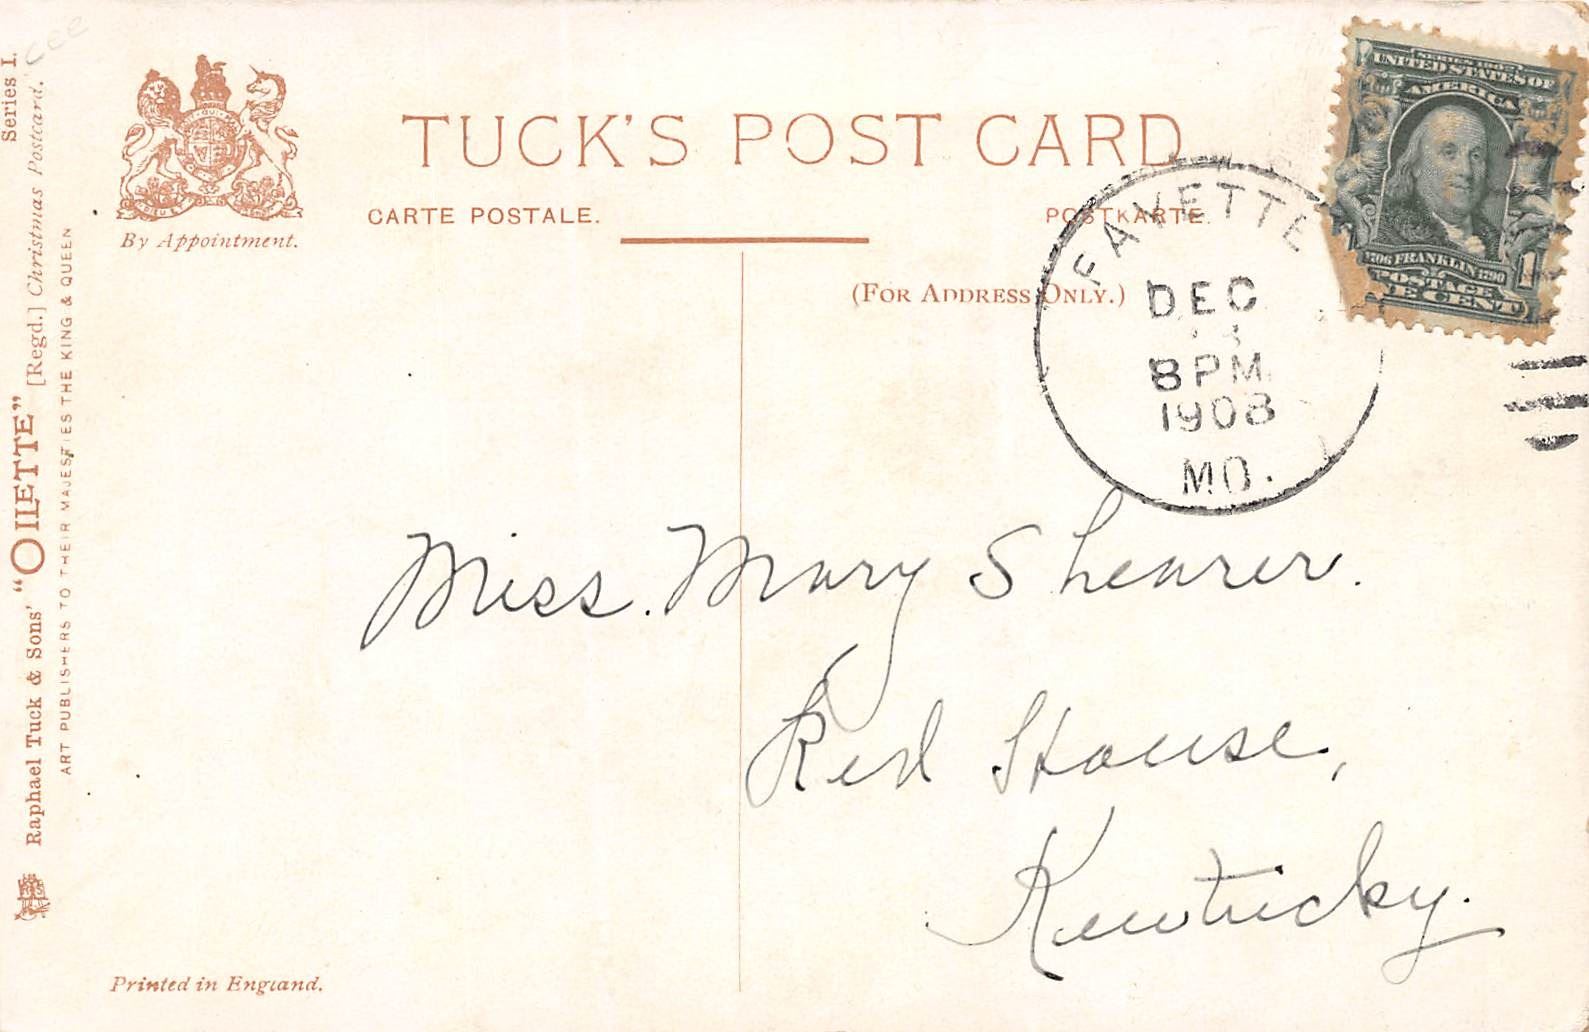 TUCK'S POST CARD
CARTE POSTALE.
POSTKARTE.
By Appointment.
(FOR ADDRESS ONLY.)
SERIES 1902
UNITED STATES OF
AMERICA
1706 FRANKLIN 1790
POSTAGE
ONE CENT
1
FAYETTE
DEC
8 PM
1908
MO.
Miss. Mary Shearer.
Red House,
Kentucky.
Series I.
Raphael Tuck & Sons' "OILETTE" [Regd.] Christmas Postcard.
ART PUBLISHERS TO THEIR MAJESTIES THE KING & QUEEN
Printed in England.